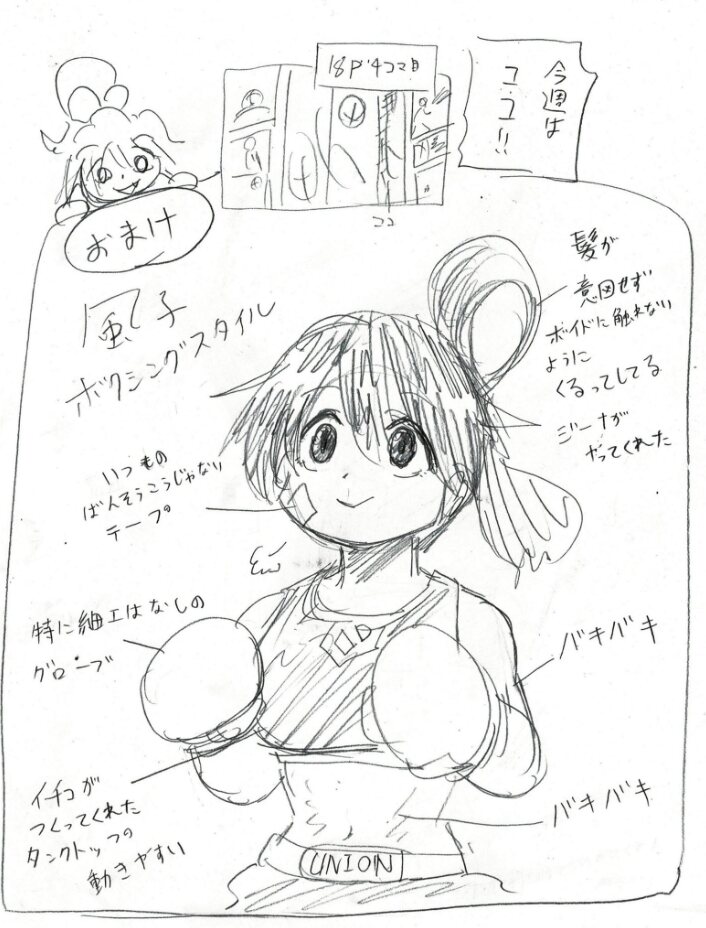 今週は
ココ!!
18P 4コマ目
ココ
おまけ
風子
ボクシングスタイル
髪が
意図せず
ボイドに触れない
ように
くるってしてる
ジーナが
やってくれた
いつもの
ばんそうこうじゃない
テープ
特に細工はなしの
グローブ
バキバキ
イチコが
つくってくれた
タンクトップの
動きやすい
バキバキ
UNION